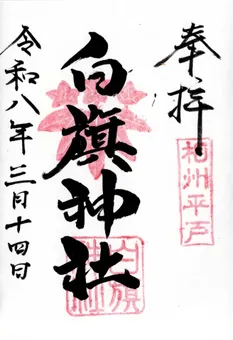 奉拝
相州平戸
白旗神社
白旗
神社
令和八年三月十四日